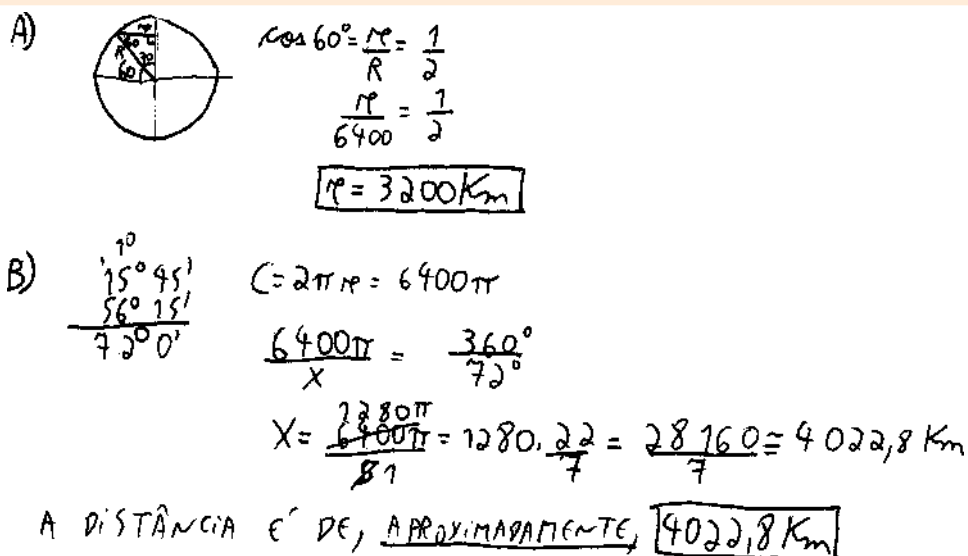 A)
r
60
R
30
60
cos 60° = r/R = 1/2
r/6400 = 1/2
r = 3200 Km
B)
1°
15° 45'
56° 15'
72° 0'
C = 2πr = 6400π
6400π/X = 360°/72°
X = 6400π/5 1280π/1 = 1280 . 22/7 = 28160/7 ≅ 4022,8 Km
A DISTÂNCIA É DE, APROXIMADAMENTE, 4022,8 Km